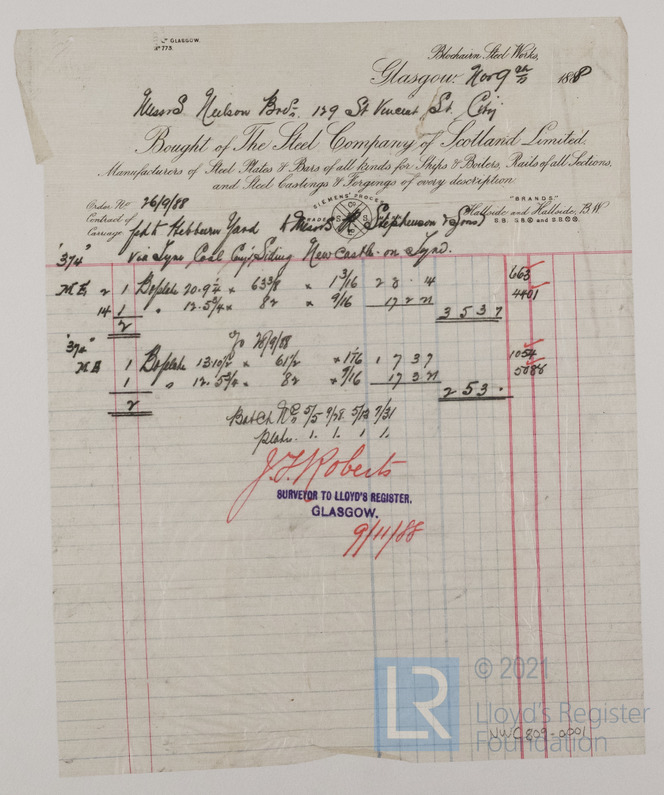 Lᵀᴰ GLASGOW.
Nº 773.
Blochairn Steel Works,
Glasgow, Nov 9th 1888
Messrs Neilson Bros. 129 St Vincent St. City
Bought of The Steel Company of Scotland Limited.
Manufacturers of Steel Plates & Bars of all kinds for Ships & Boilers, Rails of all Sections,
and Steel Castings & Forgings of every description.
SIEMENS' PROCESS
TRADE
"BRANDS"
Hallside and Hallside, B.W.
Order No 26/9/88
Contract of
Carriage fod to Hebburn Yard to Messrs Stephenson & Sons
via Tyne Coal Coy's Siding Newcastle-on-Tyne.
"374"
M E 2 1 Bo plate 20.9¼ x 63⅜ x 1 3/16 2 8 . 4 663
14 1 " 12.5¾ x 82 x 9/16 17 2 21 3 5 3 7 4401
2
Do 28/9/88
"374"
M E 1 Bo plate 13.10½ x 61½ x 1 1/16 1 7 3 7 1054
1 " 12.5¾ x 82 x 9/16 17 3 21 5088
2 2 5 3 .
Batch No 5/5 9/28 5/13 7/31
plates 1. 1. 1 1.
J. F. Roberts
SURVEYOR TO LLOYD'S REGISTER.
GLASGOW.
9/11/88
LR
© 2021
Lloyd's Register
Foundation
NWC809-0001